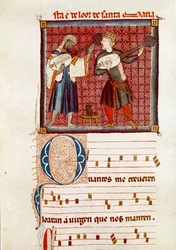 sta é de loor de santa
Quantos me creueren
loaran a uirgen que nos manten.